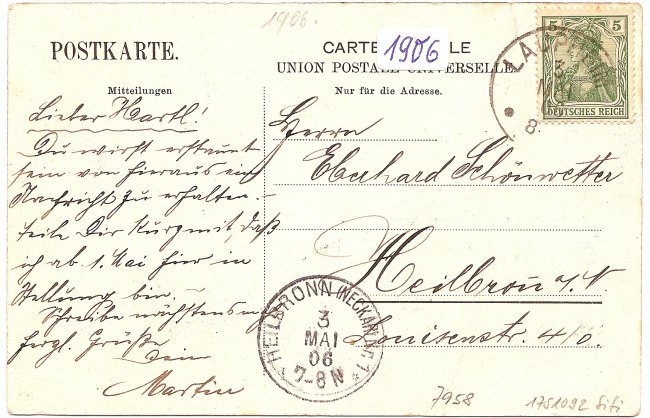 1906.
POSTKARTE.
CARTE LE
1906
UNION POSTALE UNIVERSELLE
Mitteilungen
Nur für die Adresse.
5 5
DEUTSCHES REICH
8
Lieber Hartl!
Du wirst erstaunt
sein von hieraus ein
Nachricht zu erhalten.
teile Dir kurz mit, daß
ich ab 1. Mai hier in
Stellung bin –
Schreibe nächstens
Herzl. Grüße
Dein
Martin
Herrn
Eberhard Schönwetter
Heilbron a/N.
Louisenstr. 40.
HEILBRONN (NECKAR) Nr. 1
3
MAI
06
7-8 N
7958
1751092